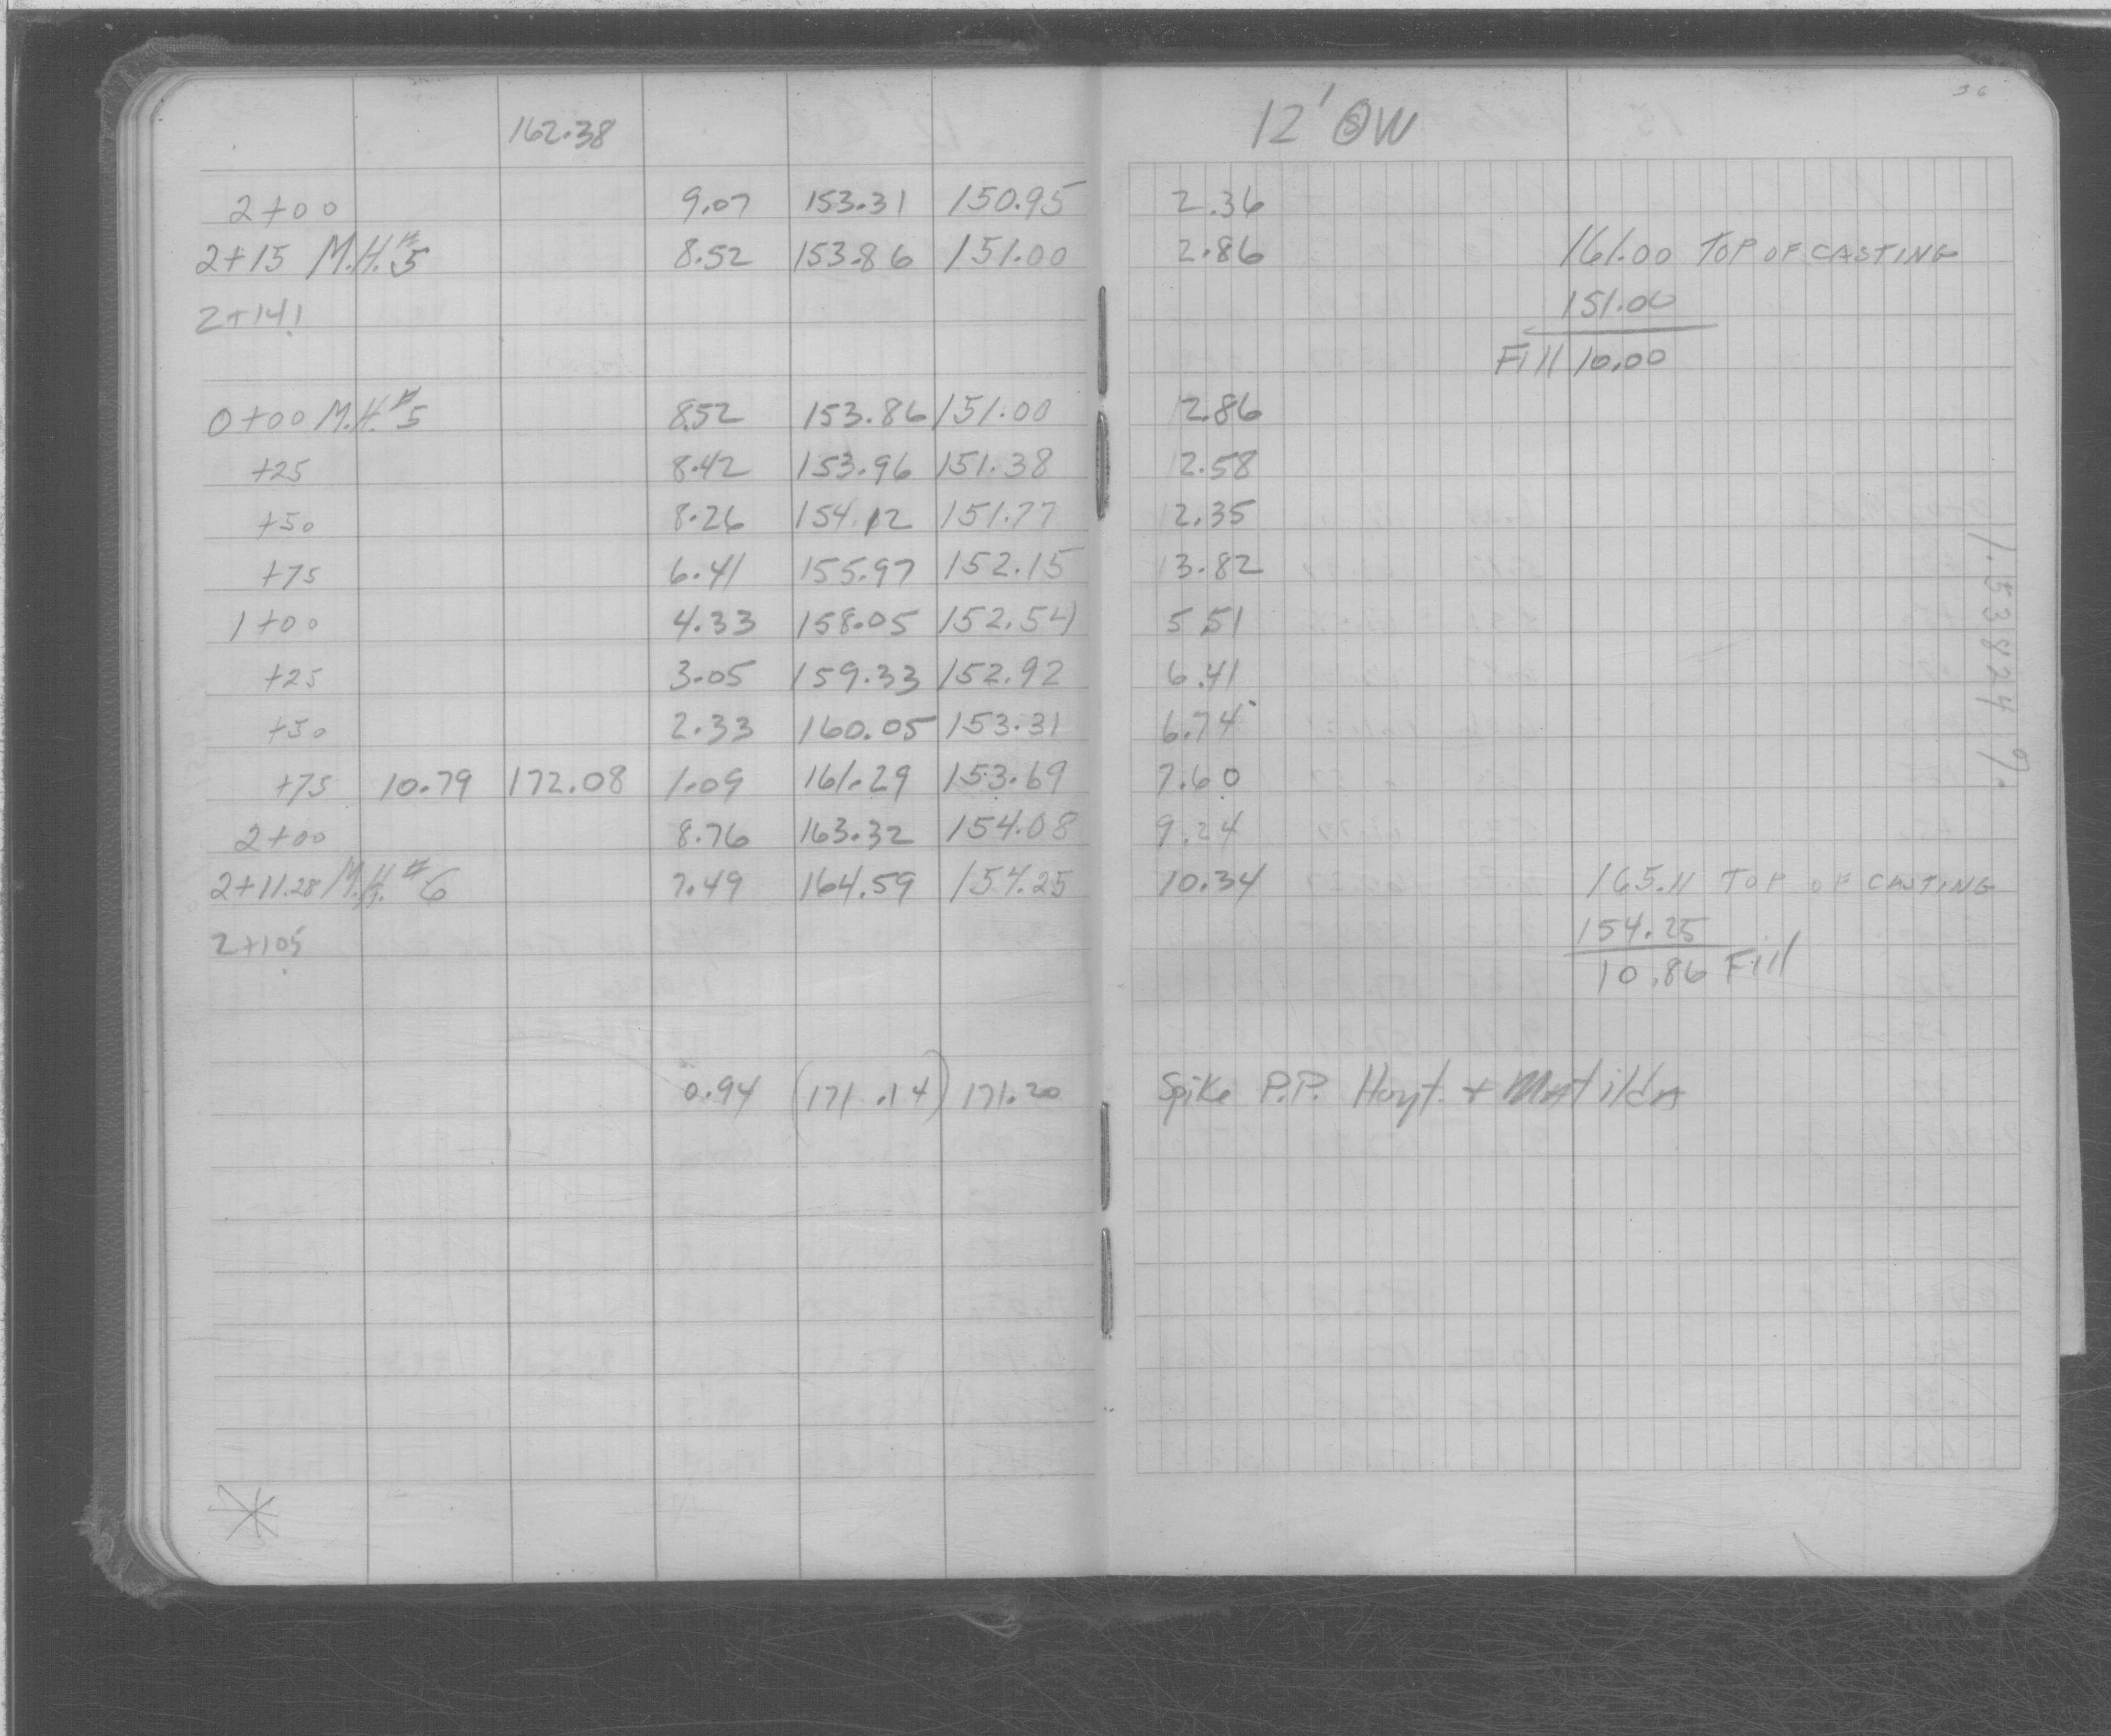 36
162.38 12' OSW
2+00 9.07 153.31 150.95 2.36
2+15 M.H.#5 8.52 153.86 151.00 2.86 161.00 TOP OF CASTING
2+141 151.00
Fill 10.00
0+00 M.H.#5 8.52 153.86 151.00 2.86
+25 8.42 153.96 151.38 2.58
+50 8.26 154.12 151.77 2.35
+75 6.41 155.97 152.15 3.82
1+00 4.33 158.05 152.54 5.51
+25 3.05 159.33 152.92 6.41
+50 2.33 160.05 153.31 6.74
+75 10.79 172.08 1.09 161.29 153.69 7.60
2+00 8.76 163.32 154.08 9.24
2+11.28 M.H.#6 7.49 164.59 154.25 10.34 165.11 TOP OF CASTING
2+105 154.25
10.86 Fill
0.94 (171.14) 171.20 Spike P.P. Hoyt + Matilda
1.538249.